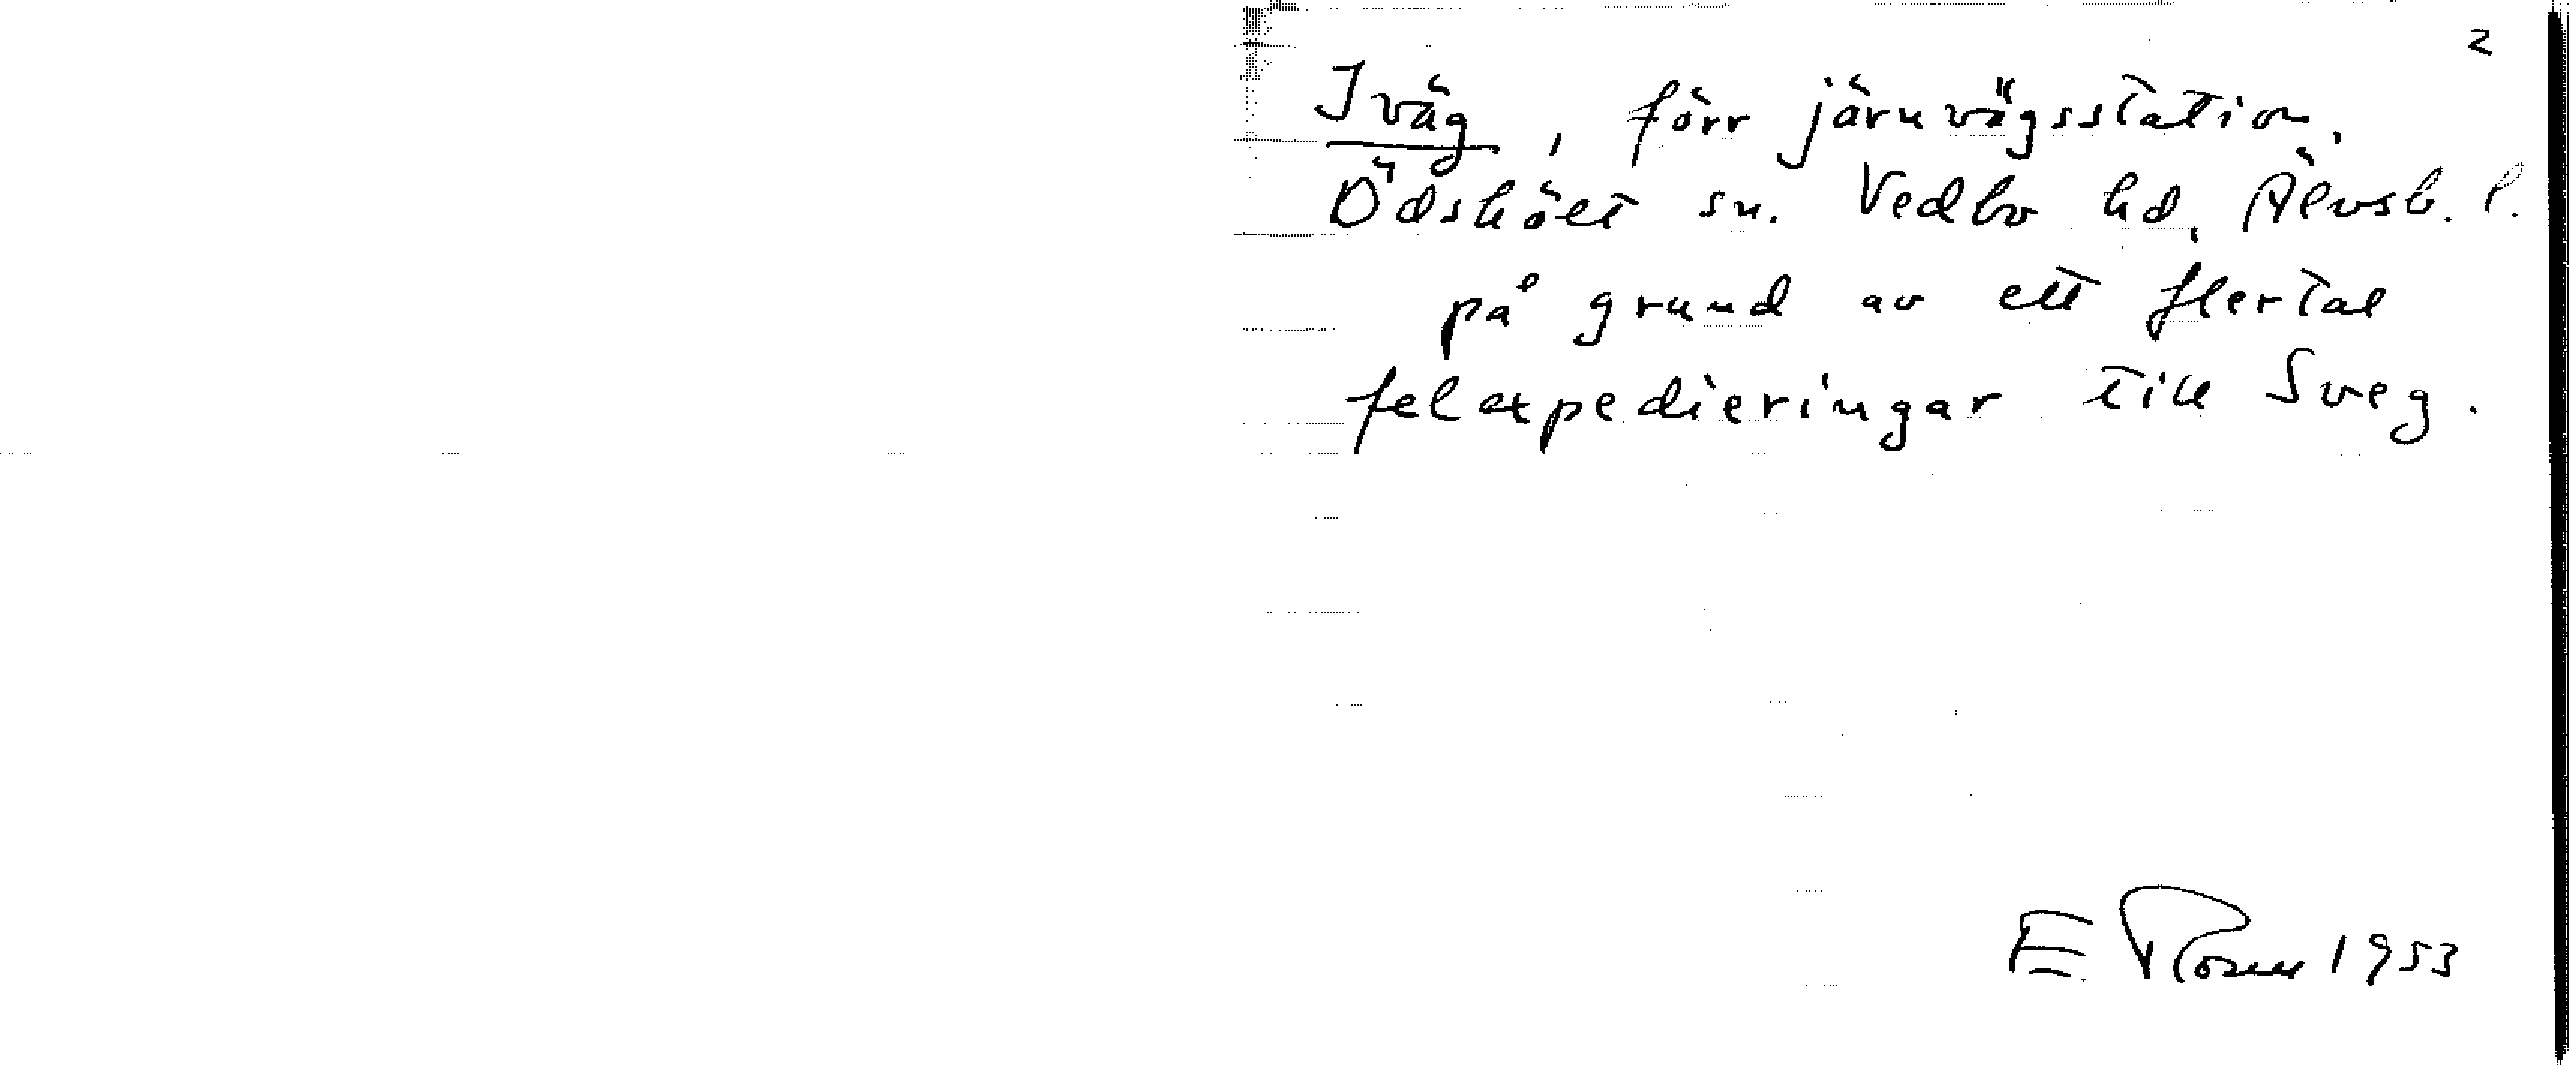 2
Iväg, förr järnvägsstation,
Ödskölt sn. Vedbo hd, Älvsb. l.
på grund av ett flertal
felexpedieringar till Sveg.
E Rosell 1953